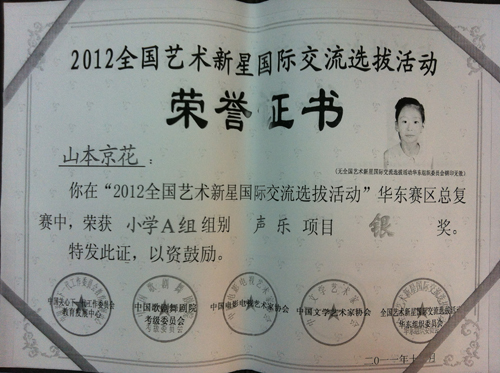 2012全国艺术新星国际交流选拔活动
荣誉证书
(无全国艺术新星国际交流选拔活动华东组织委员会钢印无效)
山本京花:
你在“2012全国艺术新星国际交流选拔活动”华东赛区总复
赛中,荣获 小学A组 组别 声乐 项目 银 奖。
特发此证,以资鼓励。
中国关心下一代工作委员会
教育发展中心
中国歌剧舞剧院
考级委员会
中国电影电视艺术家协会
中国文学艺术家协会
全国艺术新星国际交流选拔活动
华东组织委员会
二〇一一年十